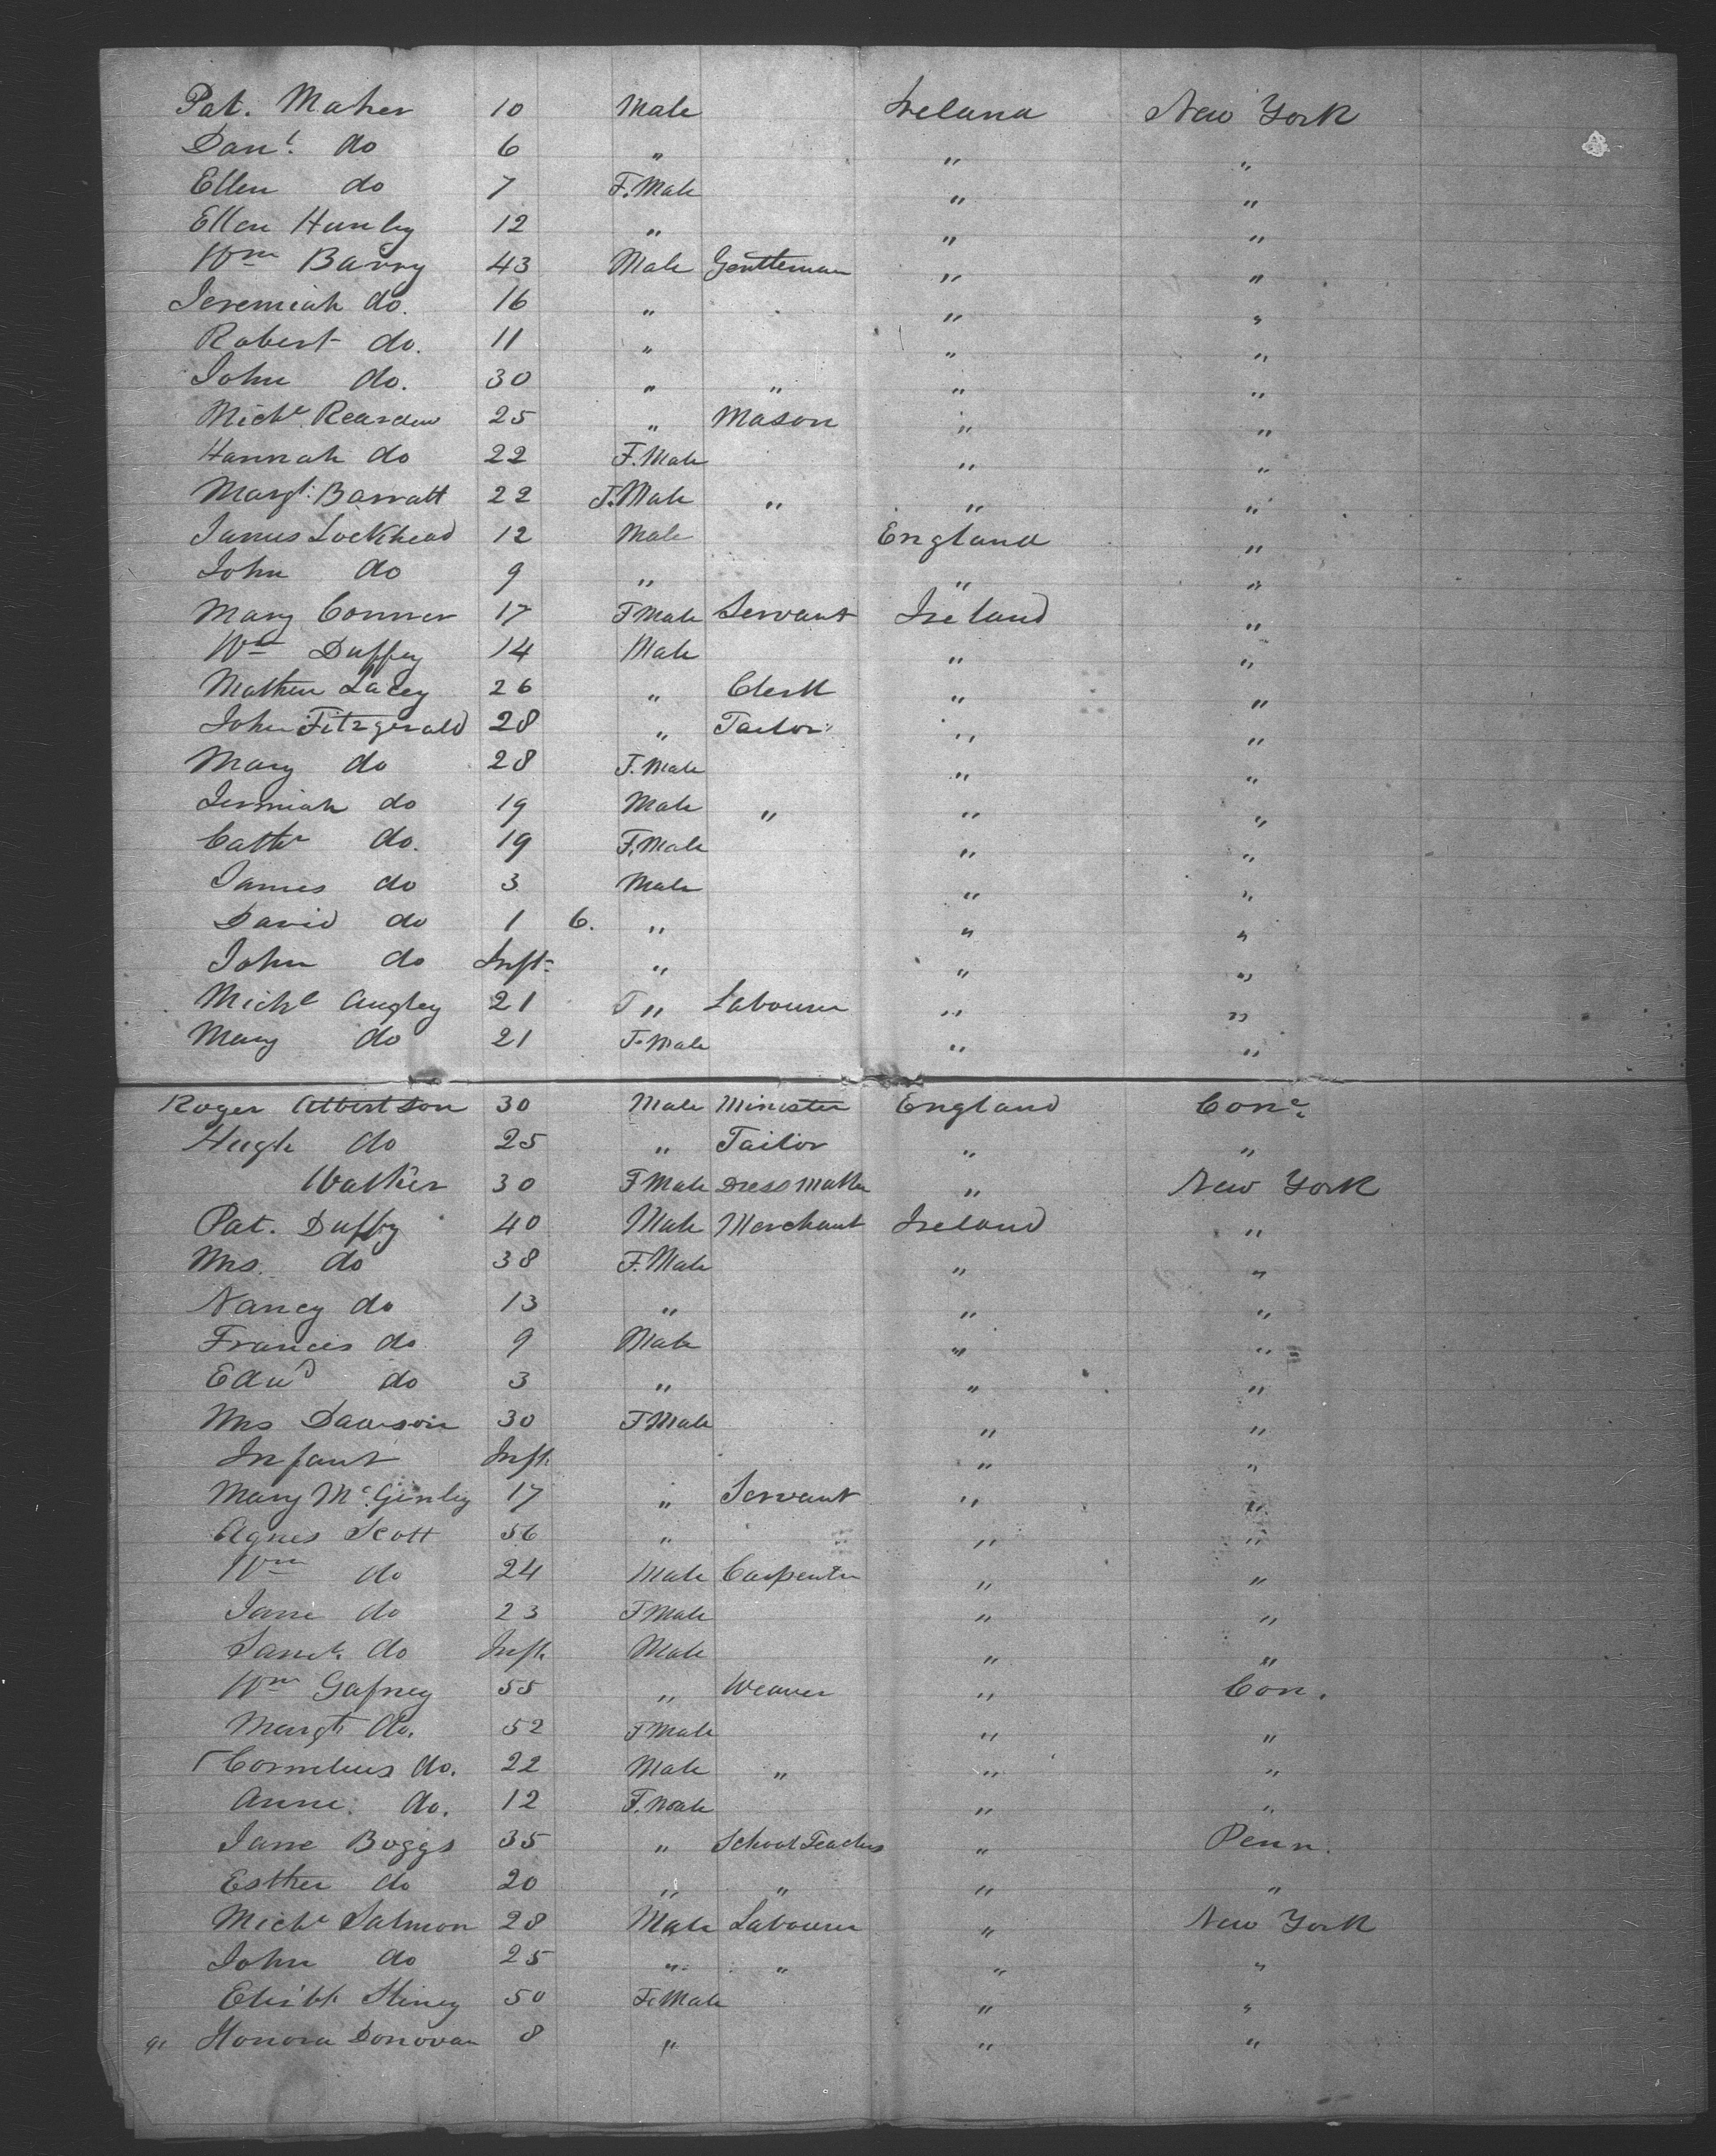 Pat. Maher 10 Male Ireland New York
Danl. do 6 " " "
Ellen do 7 F. Male " "
Ellen Hunly 12 " " "
Wm Barry 43 Male Gentleman " "
Jeremiah do. 16 " " "
Robert do. 11 " " "
John do. 30 " " " "
Michl. Rearden 25 " Mason " "
Hannah do 22 F. Male " "
Margt. Barratt 22 F. Male " " "
James Lockhead 12 Male England "
John do 9 " " "
Mary Conner 17 F Male Servant Ireland "
Wm Duffey 14 Male " "
Mathew Lacey 26 " Clerk " "
John Fitzgerald 28 " Tailor " "
Mary do 28 F. Male " "
Jermiah do 19 Male " " "
Cathe do. 19 F. Male " "
James do 3 Male " "
David do 1 6. " " "
John do Inft. " " "
Michl 21 " Labourer " "
Mary do 21 F. Male " "
Roger Albertson 30 Male Minister England Conc.
Hugh do 25 " Tailor " "
Walker 30 F Male Dress Maker " New York
Pat. Duffy 40 Male Merchant Ireland "
Mrs. do 38 F. Male " "
Nancy do 13 " " "
Francis do 9 Male " "
Edwd do 3 " " "
Mrs Dawson 30 F Male " "
Infant Inft. " "
Mary Mc.Ginley 17 " Servant " "
Agnes Scott 56 " " "
Wm do 24 Male Carpenter " "
Jane do 23 F Male " "
Saml. do Inft. Male " "
Wm Gafney 55 " Weaver " Con.
Margt. do. 52 F Male " "
Cornelius do. 22 Male " " "
Anne. do. 12 F. Male " "
Jane Boggs 35 " School Teacher " Penn.
Esther do 20 " " " "
Michl Salmon 28 Male Labourer " New York
John do 25 " " " "
Elizbh. 50 F. Male " "
91 Honora Donovan 8 " " "